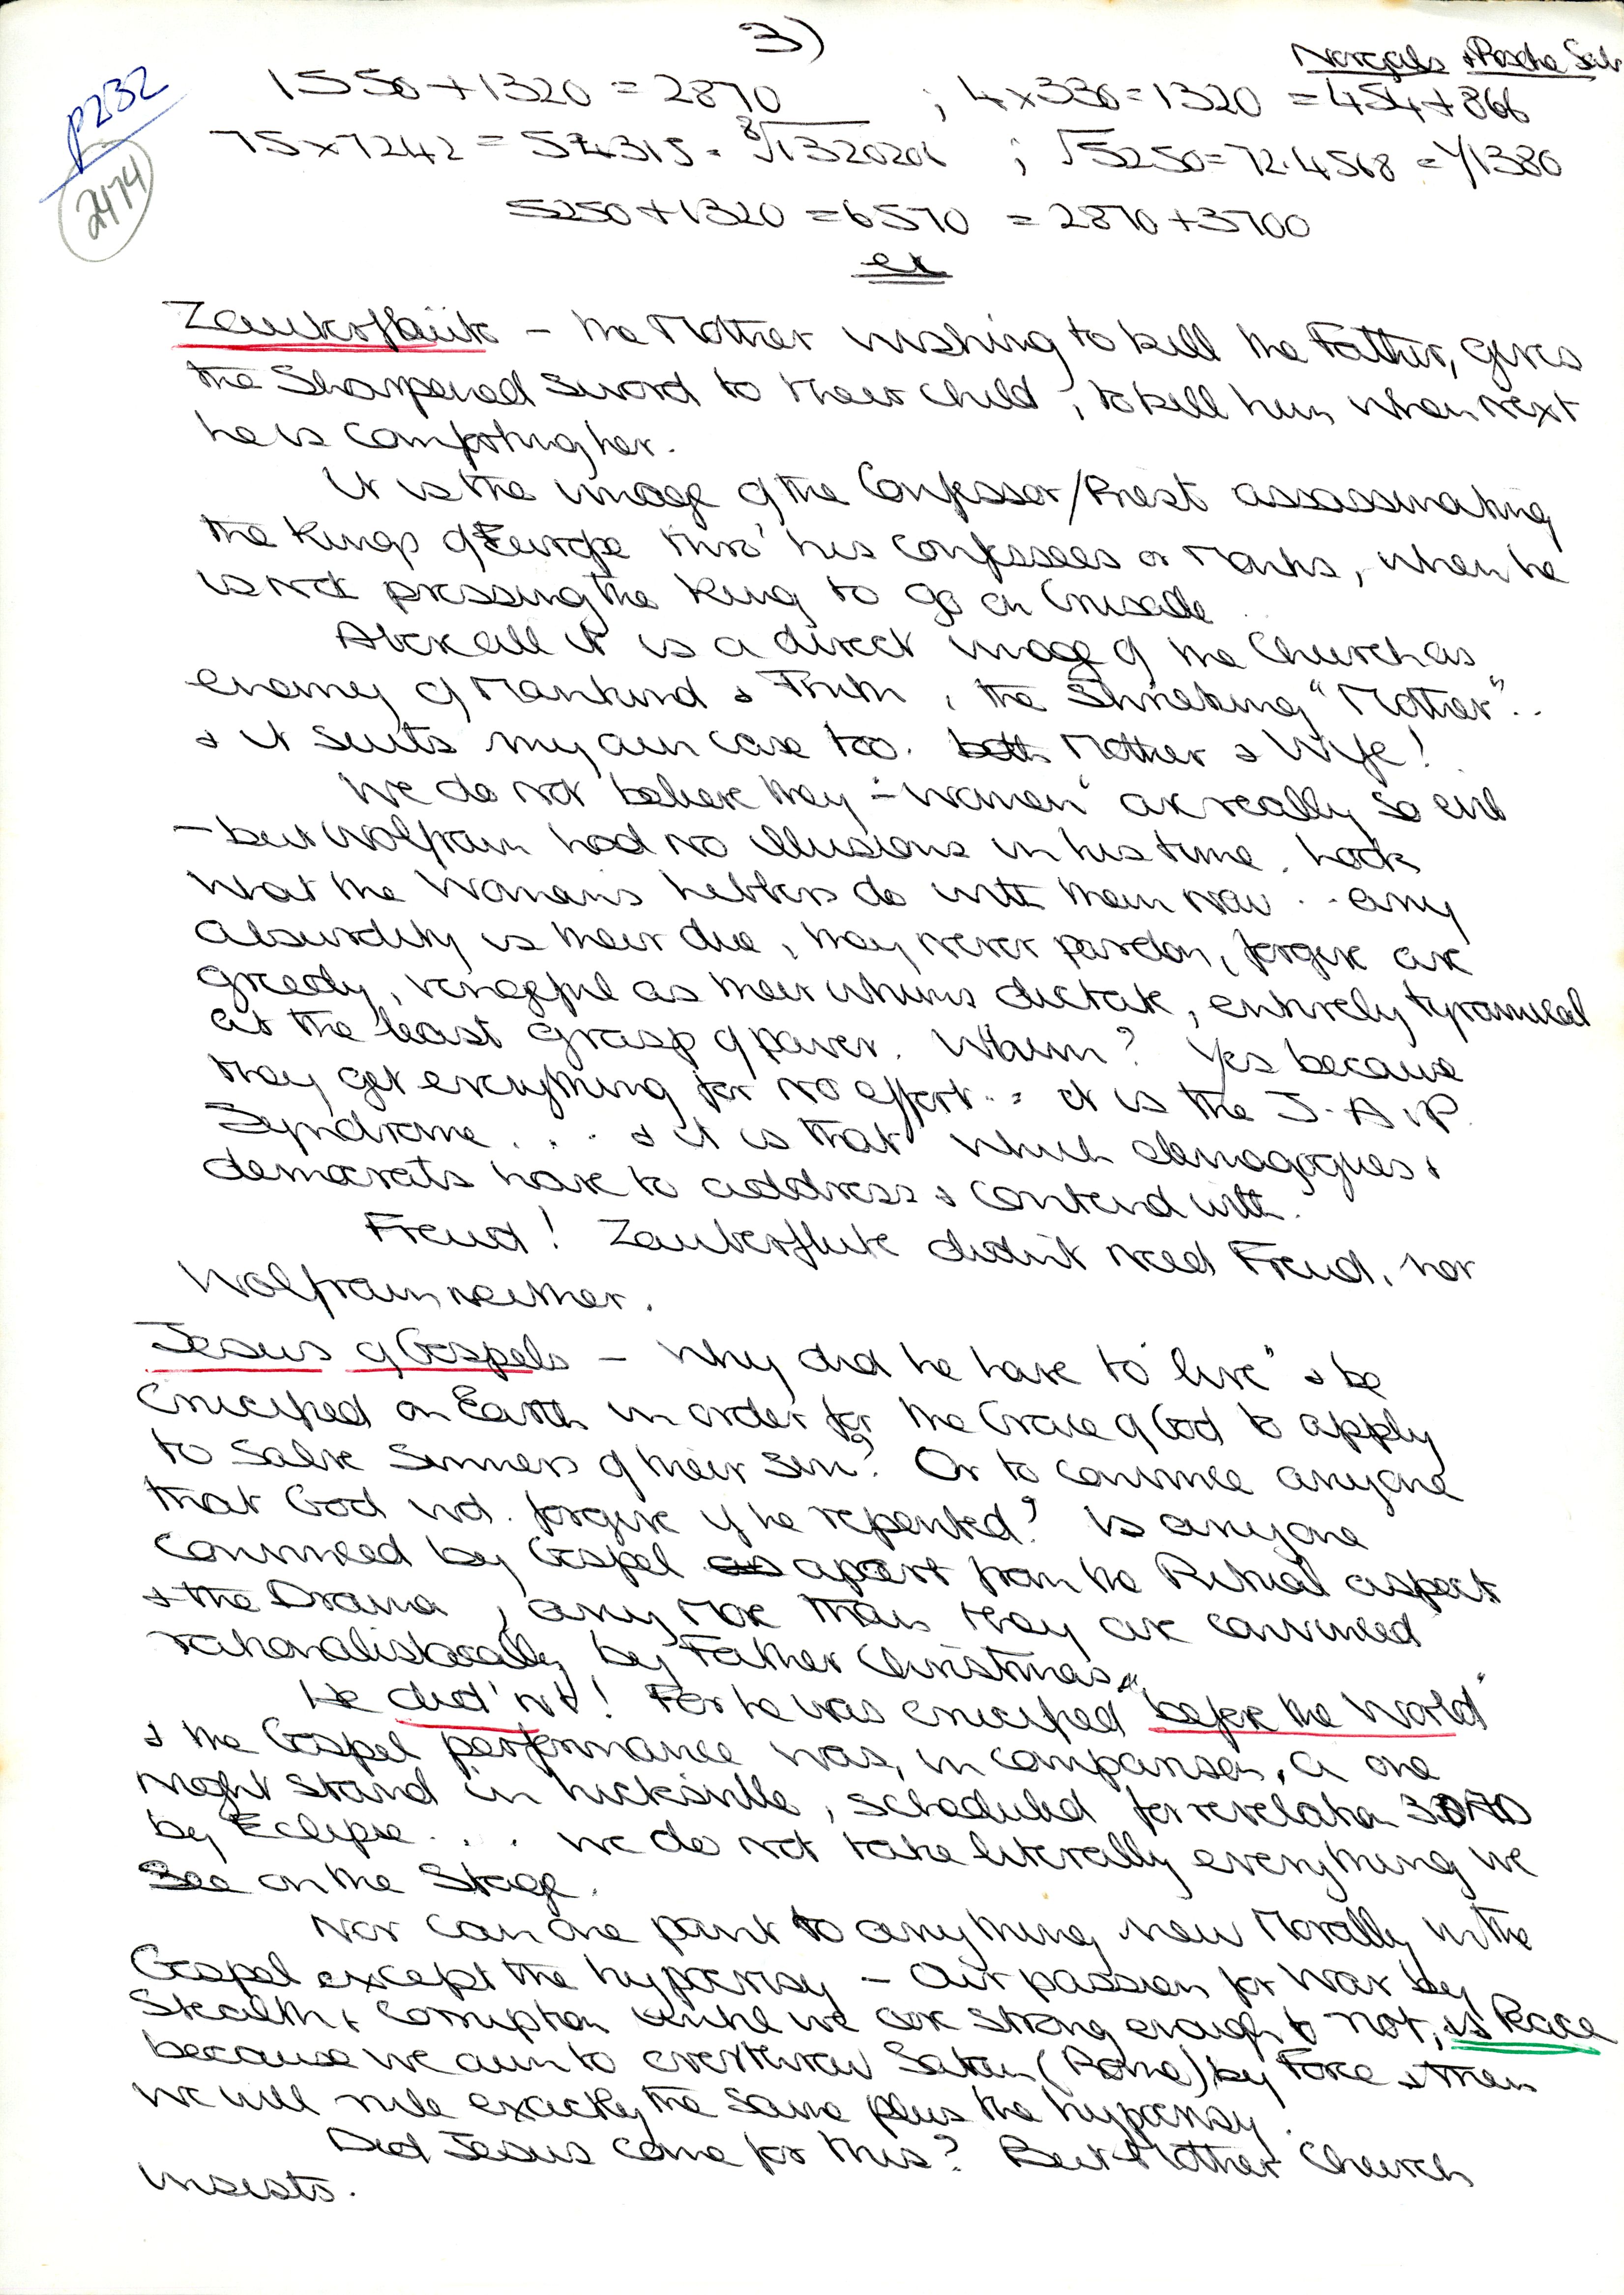 3)
Norgals & Pascha Sal
p232
2474
1550+1320 = 2870 ; 4x330=1320 = 454+866
75x7242 = 574315 = ∛1320201 ; √5250=72.4568 = 1/1380
5250+1320 = 6570 = 2870+3700
ex
Zauberflaüte – the Mother wishing to kill the Father, gives
the Sharpened sword to their child, to kill him when next
he is comforting her.
It is the image of the Confessor/Priest assassinating
the Kings of Europe thro' his confessees or Monks, when he
is not pressing the King to go on Crusade.
Above all it is a direct image of the Church as
enemy of Mankind & Truth, the Shrieking "Mother"..
& it suits my own case too. both Mother & Wife!
We do not believe they – "women" are really so evil
– but Wolfram had no illusions in his time. Look
what the Women's libbers do with them now .. any
absurdity is their due, they never pardon, forgive are
greedy, vengeful as their whims dictate, entirely tyrannical
at the least grasp of power. Whim? Yes because
they get everything for no effort .. it is the J.A.P.
Syndrome . . . & it is that which demagogues &
democrats have to address & contend with.
Freud! Zauberflute didn't need Freud, nor
Wolfram neither.
Jesus of Gospels – Why did he have to "live" & be
Crucified on Earth in order for the Grace of God to apply
to Salve Sinners of their sin? Or to convince anyone
that God wd. forgive if he repented? Is anyone
convinced by Gospel as apart from the Ritual aspect
& the Drama, any more than they are convinced
rationalistically by Father Christmas.
He did'nt! For he was crucified "before the World"
& the Gospel performance was, in comparison, a one
night stand in hicksville, scheduled for revelation 33AD
by Eclipse . . . we do not take literally everything we
See on the Stage.
Nor can one point to anything new Morally in the
Gospel except the hypocrisy – Our passion for War by
Stealth & Corruption until we are strong enough to not, is Peace
because we aim to overthrow Satan (Rome) by Force & then
we will rule exactly the same plus the hypocrisy.
Did Jesus come for this? But Mother Church
insists.